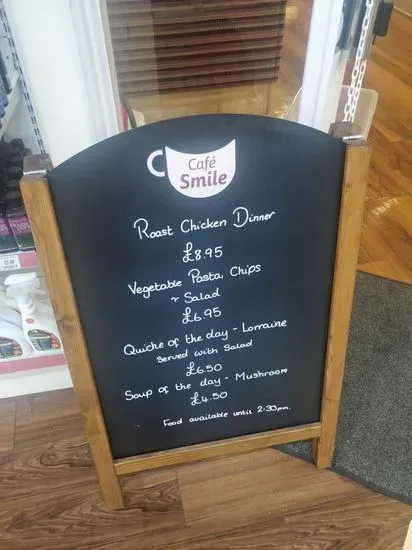 Café
Smile
Roast Chicken Dinner
£8.95
Vegetable Pasta, Chips
+ Salad
£6.95
Quiche of the day - Lorraine
Served with Salad
£6.50
Soup of the day - Mushroom
£4.50
Food available until 2:30pm.